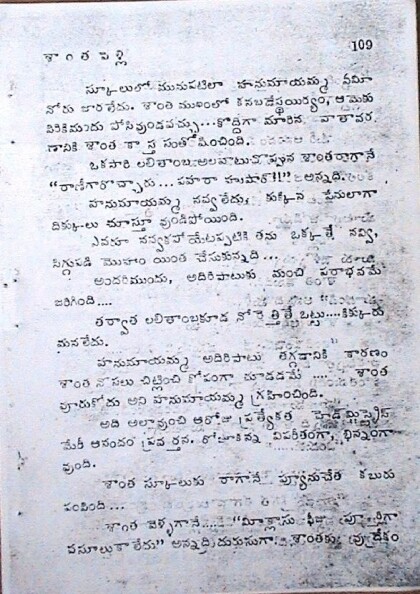 శాంత పెళ్లి
109
స్కూలులో మునుపటిలా హనుమాయమ్మ ఏమీ
నోరు జారలేదు. శాంత ముఖంలో కనబడేస్థయిర్యం, ఆమెకు
విరికిమందు పోసివుండవచ్చు...కొద్దిగా మారిన వాతావర
ణానికి శాంత కాస్త సంతోషించింది.
ఒకసారి లలితాంబ అలవాటుచొప్పున శాంతరాగానే
“రాణీగారొచ్చారు... పహరా హుషార్!!” అన్నది.
హనుమాయమ్మ నవ్వలేదు, కుక్కిన పేనులాగా
దిక్కులు చూస్తూ వుండిపోయింది.
ఎవరూ నవ్వకపోయేటప్పటికి తను ఒక్కత్తే నవ్వి,
సిగ్గుపడి మొహం యింత చేసుకున్నది...
అందరిముందు, అదిరిపాటుకు మంచి పరాభవమే
జరిగింది....
తర్వాత లలితాంబకూడ నోరెత్తితే ఒట్టు....కిక్కురు
మనలేదు.
హనుమాయమ్మ అదిరిపాటు తగ్గడానికి కారణం
శాంత నొసలు చిట్లించి కోపంగా చూడడమే శాంత
వూరుకోదు అని హనుమాయమ్మ గ్రహించింది.
అది అలావుంచి ఆరోజు ప్రత్యేకత హెడ్‌మిస్ట్రెస్
మేరీ ఆనందం ప్రవర్తన. రోజుకన్నా విపరీతంగా, భిన్నంగా
వుంది.
శాంత స్కూలుకు రాగానే ప్యూనుచేత కబురు
పంపింది...
శాంత వెళ్ళగానే.... “మీక్లాసు ఫీజు పూర్తిగా
వసూలుకాలేదు” అన్నది దురుసుగా. శాంతకు వుద్రేకం